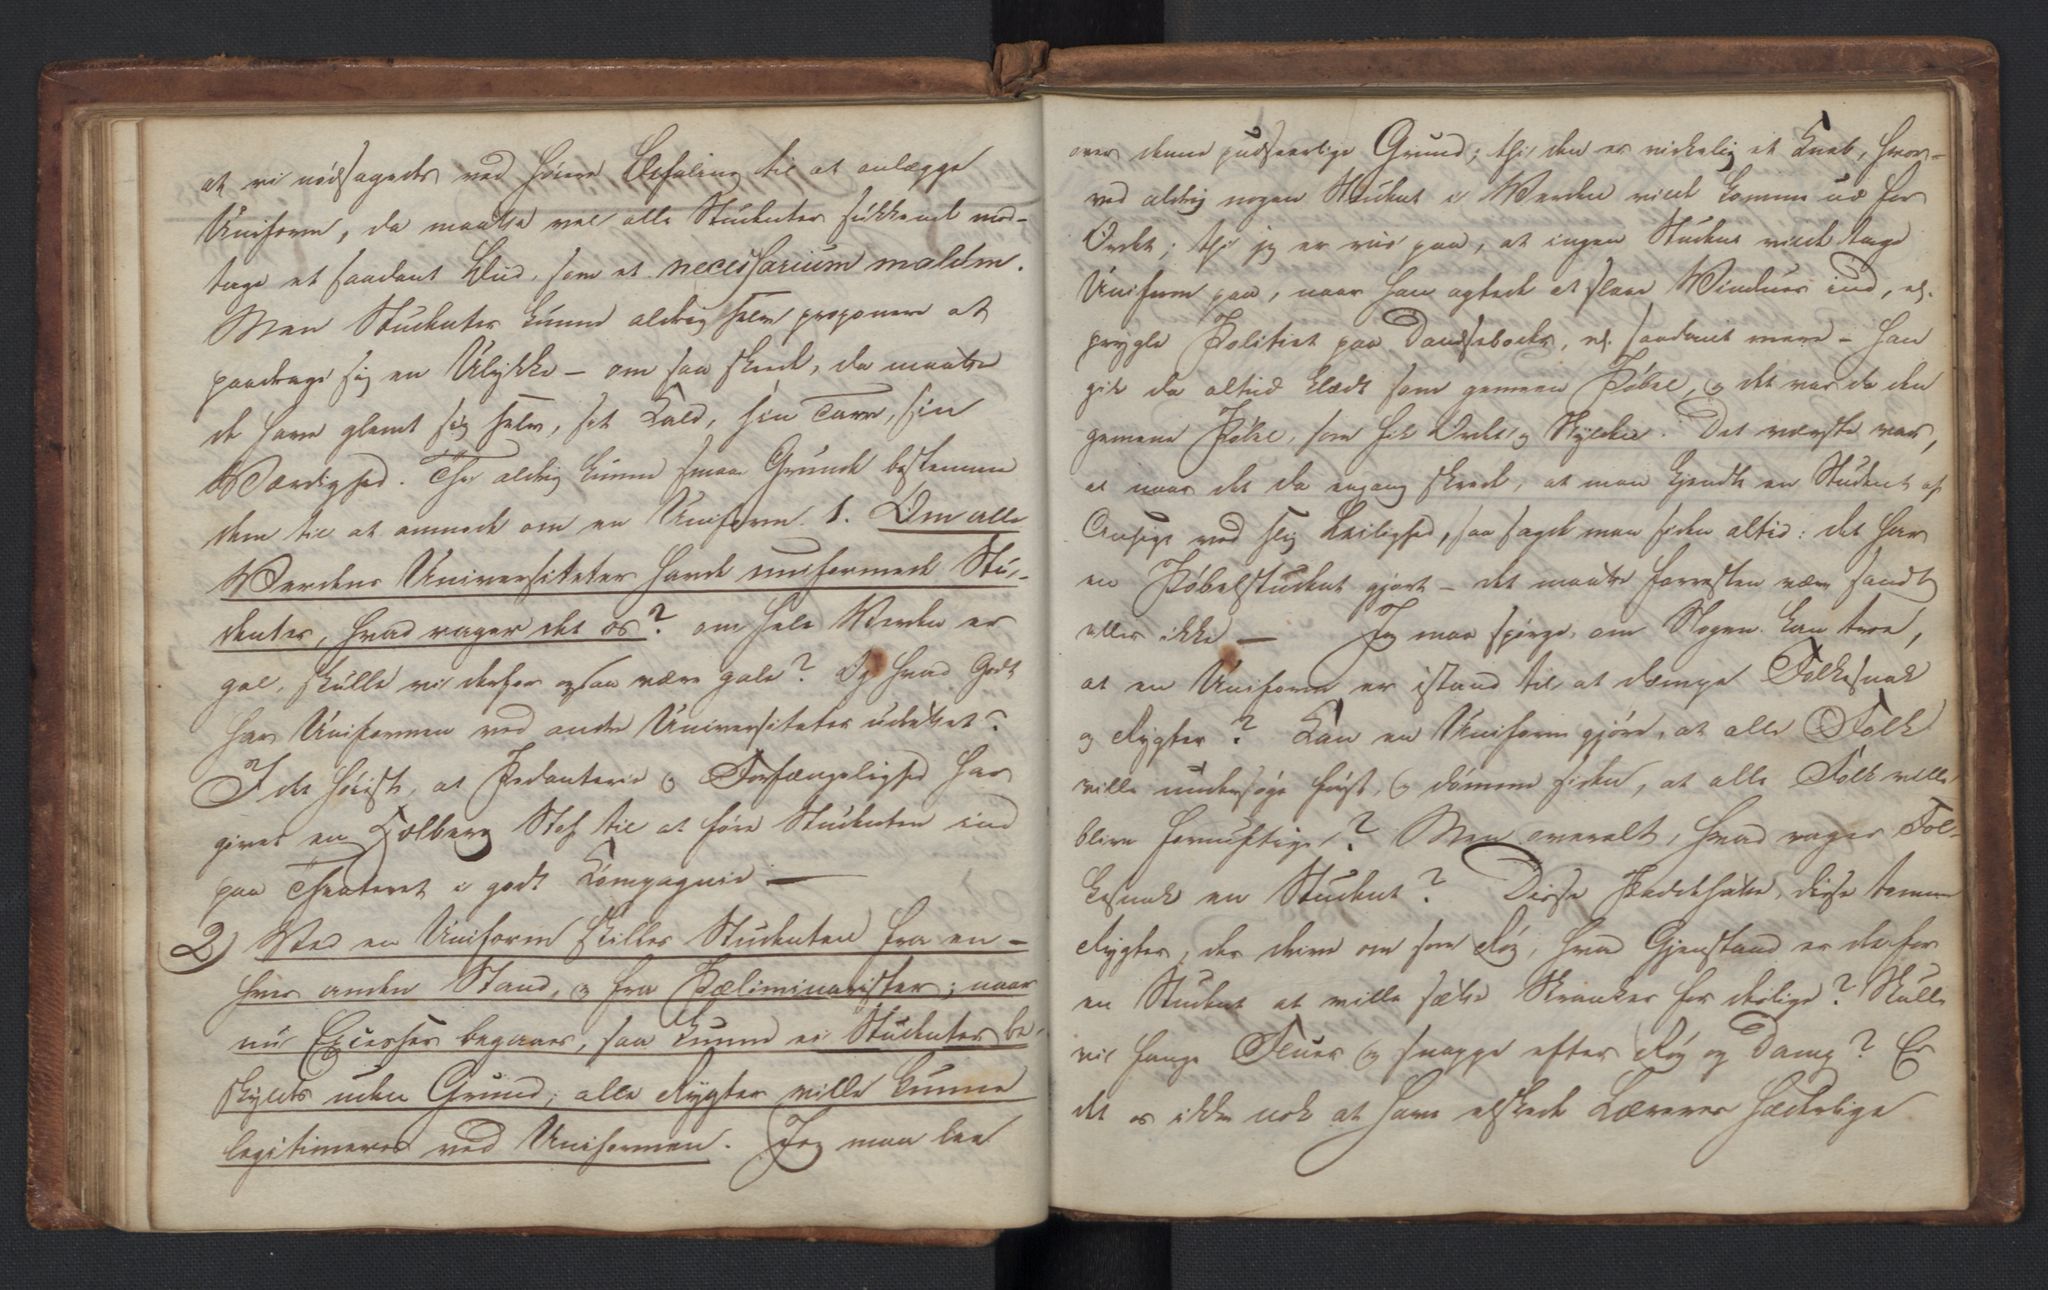 at vi nødsagedes ved høiere Befaling til at anlægge
Uniform, da maatte vel alle Studenter sukkende mod-
tage et saadant Bud, som et necessarium malum.
Men Studenter kunne aldrig selv proponere at
paadrage sig en Ulykke – om saa skede, da maatte
de have glemt sig selv, sit Kald, sin Tarv, sin
Værdighed. Thi aldrig kunne smaa Grunde bestemme
dem til at anmode om en Uniform. 1. Om alle
Verdens Universiteter havde uniformerede Stu-
denter, hvad rager det os? om hele Verden er
gal, skulle vi derfor ogsaa være gale? Og hvad Godt
har Uniformen ved andre Universiteter udrettet?
I det høieste, at Pedanterie og Forfængelighed har
givet en Holberg Stof til at føre Studenten ind
paa Theateret i godt Kompagnie —
2) Ved en Uniform skilles Studenten fra en-
hver anden Stand, og fra Præliminarister; naar
nu Excesser begaaes, saa kunne ei Studenter be-
skyldes uden Grund; alle Rygter ville kunne
legitimeres ved Uniformen. Jeg maa lee
over denne pudseerlige Grund; thi den er virkelig et Kneb, hvor-
ved aldrig nogen Student i Verden vilde komme ud for
Ordet; thi jeg er vis paa, at ingen Student vilde tage
Uniform paa, naar han agtede at slaae Vinduer ind, el.
prygle Politiet paa Dandseboder, el. saadant mere – han
gik da altid klædt som gemeen Pøbel, og det var da den
gemene Pøbel, som fik Ordet og Skylden. Det værste var,
at naar det da engang skede, at man kjendte en Student af
Ansigt ved slig Leilighed, saa sagde man siden altid: det har
en Pøbelstudent gjort – det maatte forresten være sandt
eller ikke — Jeg maa spørge, om Nogen kan troe,
at en Uniform er istand til at dæmpe Folkesnak
og Rygter? Kan en Uniform gjøre, at alle Folk
ville undersøge først, og dømme siden, at alle Folk ville
blive fornuftige? Men overalt, hvad rager Fol-
kesnak en Student? Disse Paddehatte, disse tomme
Rygter, der drive om som Røg, hvad Gjenstand er de for
en Student at ville sætte Skranker for deslige? Skulle
vi fange Fluer og snappe efter Røg og Damp? Er
det os ikke nok at have elskede Læreres hæderlige